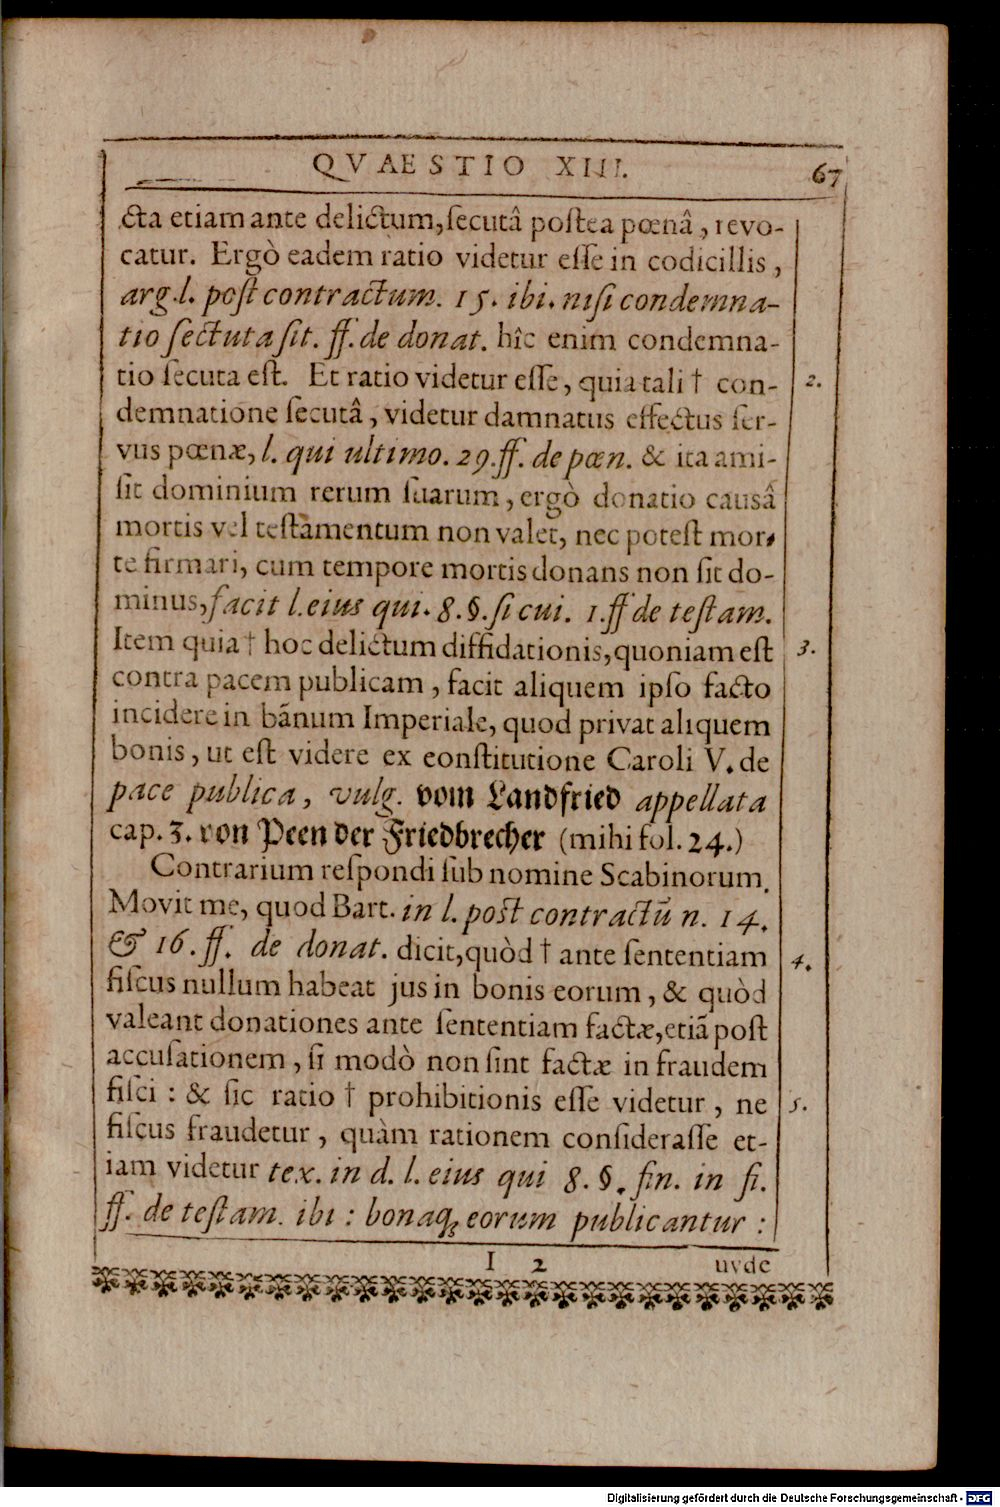 QVAESTIO XIII. 67
cta etiam ante delictum, ſecutâ poſtea pœnâ, revo-
catur. Ergò eadem ratio videtur eſſe in codicillis,
arg. l. poſt contractum. 15. ibi. niſi condemna-
tio ſectuta ſit. ff. de donat. hîc enim condemna-
tio ſecuta eſt. Et ratio videtur eſſe, quia tali † con- 2.
demnatione ſecutâ, videtur damnatus effectus ſer-
vus pœnæ, l. qui ultimo. 29. ff. de pœn. & ita ami-
ſit dominium rerum ſuarum, ergò donatio causâ
mortis vel teſtamentum non valet, nec poteſt mor-
te firmari, cum tempore mortis donans non ſit do-
minus, facit l. eius qui. 8. §. ſi cui. 1. ff de teſtam.
Item quia † hoc delictum diffidationis, quoniam eſt 3.
contra pacem publicam, facit aliquem ipſo facto
incidere in bãnum Imperiale, quod privat aliquem
bonis, ut eſt videre ex eonſtitutione Caroli V. de
pace publica, vulg. vom Landfried appellata
cap. 3. von Peen der Friedbrecher (mihi fol. 24.)
Contrarium reſpondi ſub nomine Scabinorum.
Movit me, quod Bart. in l. poſt contractũ n. 14.
& 16. ff. de donat. dicit, quòd † ante ſententiam 4.
fiſcus nullum habeat jus in bonis eorum, & quòd
valeant donationes ante ſententiam factæ, etiã poſt
accuſationem, ſi modò non ſint factæ in fraudem
fiſci: & ſic ratio † prohibitionis eſſe videtur, ne 5.
fiſcus fraudetur, quàm rationem conſideraſſe et-
iam videtur tex. in d. l. eius qui 8. §. fin. in fi.
ff. de teſtam. ibi: bonaq; eorum publicantur:
I 2 uvde
Digitalisierung gefördert durch die Deutsche Forschungsgemeinschaft - DFG